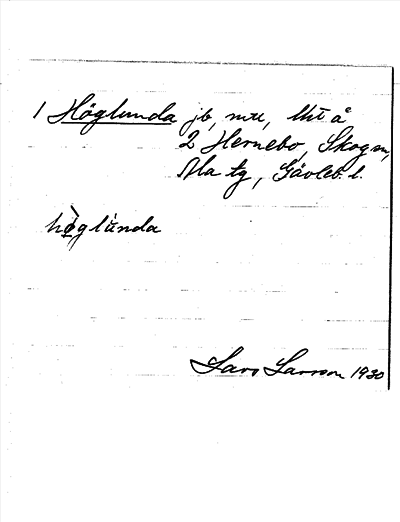 1 Höglunda jb, mtr, Utt å
2 Hernebo, Skog sn,
Ala tg, Gävleb. l.
hò̱glùnda
Lars Larsson 1930